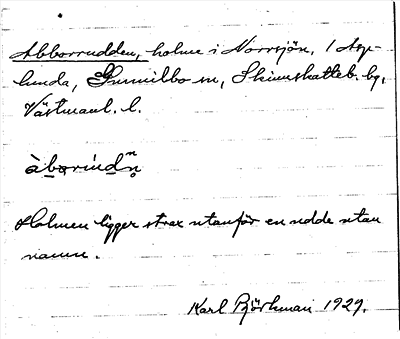 Abborrudden, holme i Norrsjön, 1 Asp-
lunda, Gunnilbo sn, Skinnskatteb. bg,
Västmanl. l.
àbₒrindn̥
Holmen ligger strax utanför en udde utan
namn.
Karl Björkman 1929.